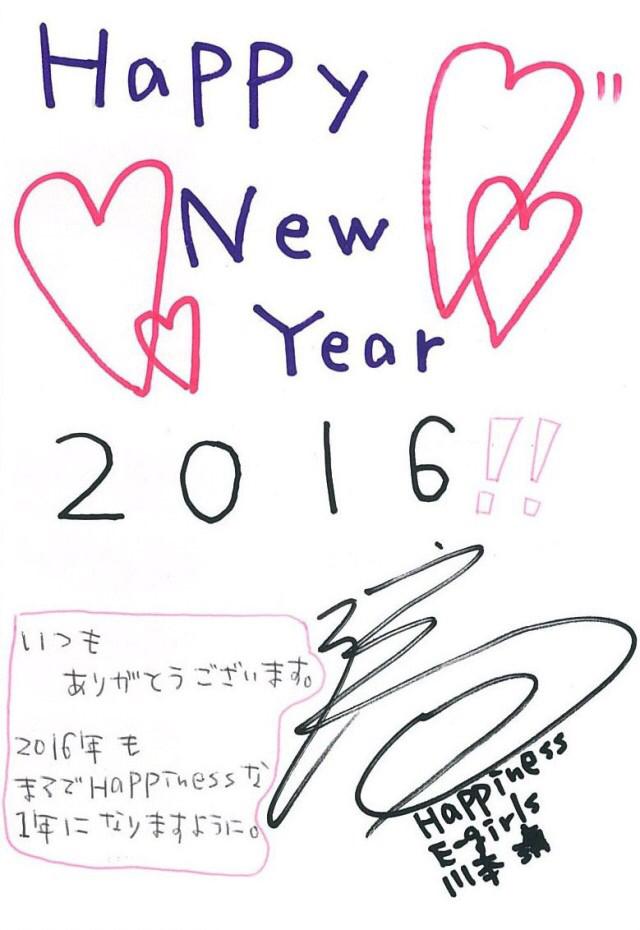 Happy
New
Year
2016!!
いつも
ありがとうございます。
2016年も
まるでHappinessな
1年になりますように。
Happiness
E-girls
川本 璃